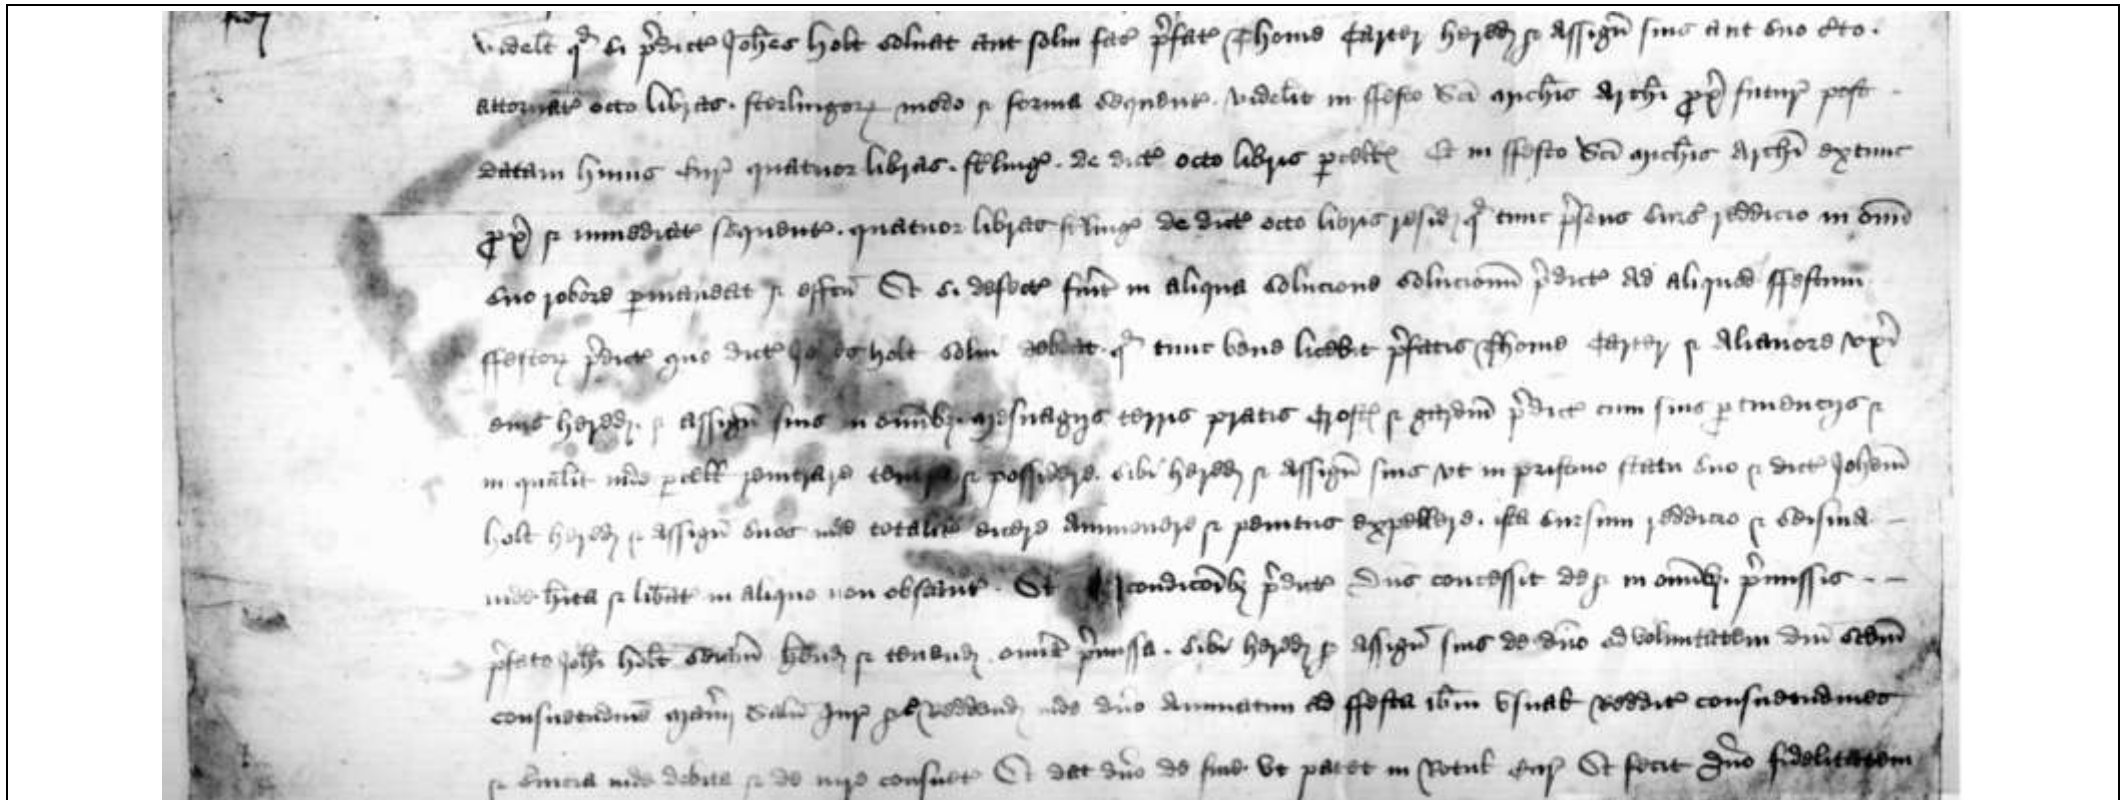 videlt qd si p̄dict Joh̄es holt solvat aut solui fac p̄fat Thome Carter hered et assign suis aut suo c̄to
attornat octo libras sterlingor modo et forma sequent videlit in ffesto Sci Mich̄is Arch̄i px̄ futur post
datam huius Cur quatuor libras st̄ling de dict octo libris p̱cell Et in ffesto Sci Mich̄is Arch̄i extunc
px̄ et inmediat sequent quatuor libras st̄ling de dict octo libris resid qd tunc p̄sens surs reddicio in om̄i
suo robore p̱maneat et eff̄cu Et si defect fu̅it in aliqua solucione solucionu̅ p̄dict ad aliquod ffestum
ffestor p̄dict quo dict holt solui debeat qd tunc bene licebit p̄fatis Thome Carter et Alianore vx̄i
eius hered et assign suis in om̄ibz mesuagijs terris pratis Croft et gardin̄ p̄dict cum suis p̱tinencijs et
in qual̄it inde p̱cell reintrare et possidere sibi hered et assign suis vt in pristino statu suo et dict Johem̄
holt hered et assign suos inde totalit̄ eicere Ammovere et penitus expellere ista sursum reddicio et seisina
inde h̄ita et lib̄at in aliquo non obstant Et condicōibz p̄dict Dn̄s concessit de se in om̄ibz p̄missis
p̄fato Joh̄i holt seisinā h̄end et tenend om̄ia p̄missa sibi hered et assign suis de dn̄o ad voluntatem dn̄i scdm̄
consuetudine̅ Man̄ij Salu̅ Jur Reddend inde dn̄o Annuatim ad ffesta ib̄m vsual reddit consuetudines
et s̄uicia inde debita et de iure consuet Et dat dn̄o de fine vt patet in Rotul Cur Et fecit dn̄o fidelitatem